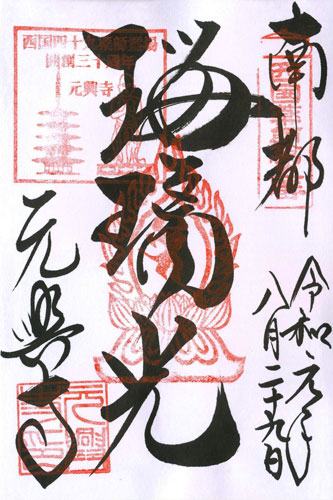 南都
令和元年
八月二十九日
瑠璃光
元興寺
西国四十九薬師霊場
開創三十周年
元興寺